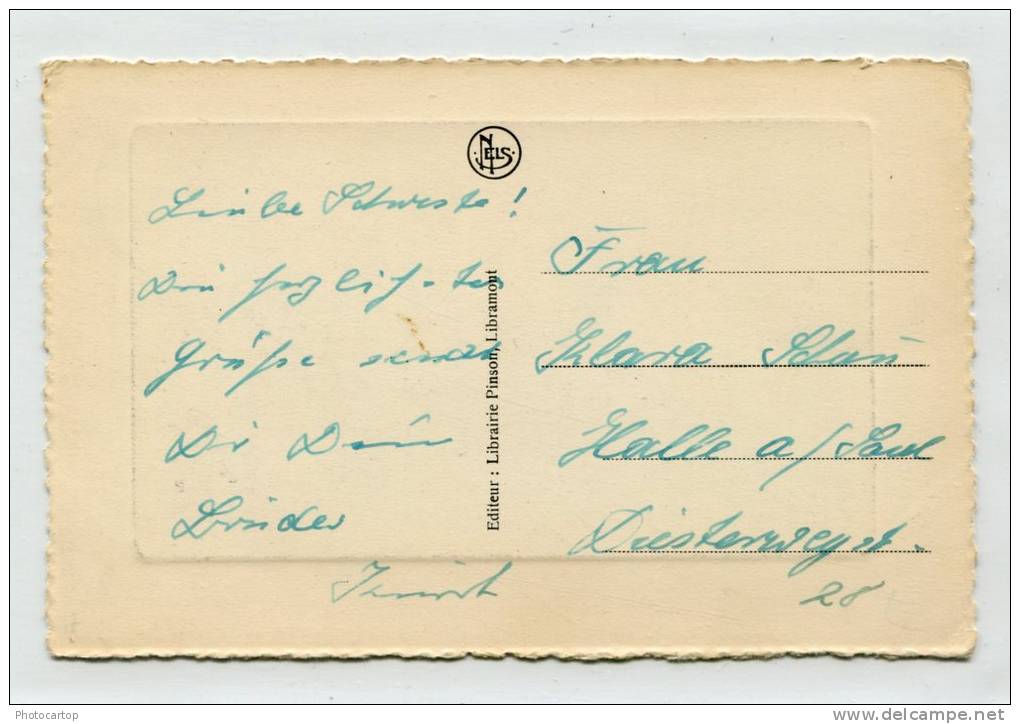 NELS
Liebe Schwester!
Die herzlichsten
Grüße sendet
Dir Dein
Bruder
Frau
Klara
Halle a/Saale
Diesterwegst.
28
Editeur : Librairie Pinson, Libramont
Photocartop
www.delcampe.net